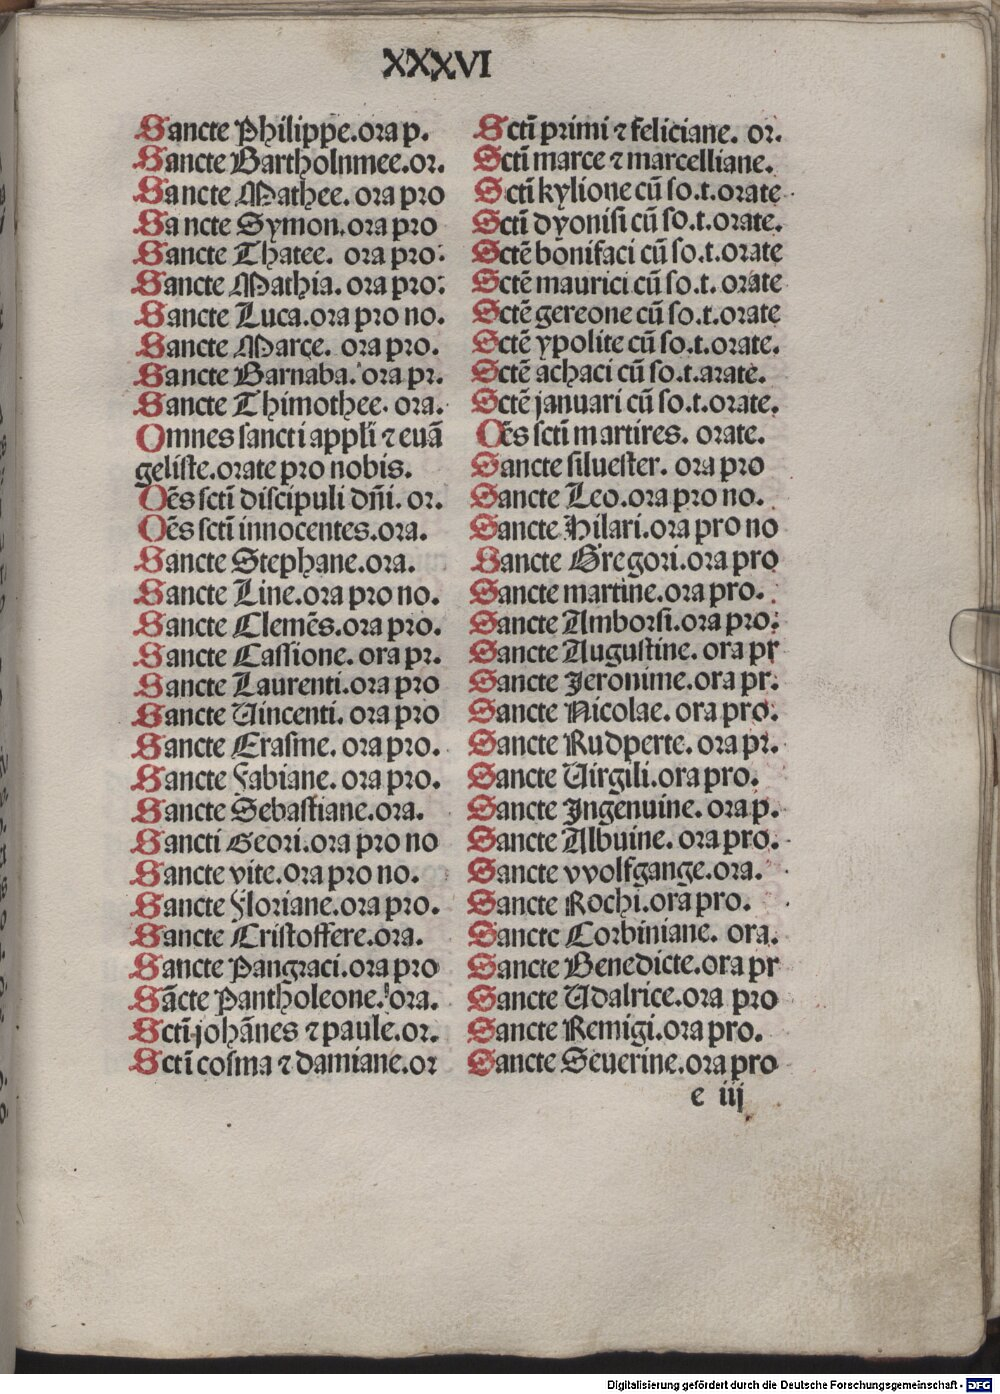 XXXVI
Sancte Philippe.ora p.
Sancte Bartholnmee.or.
Sancte Mathee. ora pro
Sancte Symon.ora pro
Sancte Thatee. ora pro:
Sancte Mathia. ora pro:
Sancte Luca.ora pro no.
Sancte Marce. ora pro.
Sancte Barnaba. ora pr.
Sancte Thimothee. ora.
Omnes sancti appli ⁊ euā
geliste.orate pro nobis.
Oēs sctī discipuli dn̄i. or.
Oēs sctī innocentes.ora.
Sancte Stephane.ora.
Sancte Line.ora pro no.
Sancte Clemēs.ora pro.
Sancte Cassione. ora pr.
Sancte Laurenti.ora pro
Sancte Uincenti. ora pro
Sancte Erasme. ora pro.
Sancte Fabiane. ora pro.
Sancte Sebastiane.ora.
Sancti Geori.ora pro no
Sancte vite.ora pro no.
Sancte Floriane.ora pro.
Sancte Cristoffere.ora.
Sancte Pangraci.ora pro
Sācte Pantholeone. ora.
Sctī johānes ⁊ paule.or.
Sctī cosma ⁊ damiane.or
Sctī primi ⁊ feliciane. or.
Sctī marce ⁊ marcelliane.
Sctī kylione cū so.t.orate
Sctī dyonisi cū so.t.orate.
Sctē bonifaci cū so.t.orate
Sctē maurici cū so.t. orate
Sctē gereone cū so.t.orate
Sctē ypolite cū so.t.orate.
Sctē achaci cū so.t.arate.
Sctē januari cū so.t.orate.
Oēs sctī martires. orate.
Sancte siluester. ora pro
Sancte Leo.ora pro no.
Sancte Hilari.ora pro no
Sancte Gregori.ora pro
Sancte martine.ora pro.
Sancte Amborsi.ora pro:
Sancte Augustine. ora pr
Sancte Jeronime.ora pr.
Sancte Nicolae. ora pro.
Sancte Rudperte. ora pr.
Sancte Uirgili.ora pro.
Sancte Ingenuine. ora p.
Sancte Albuine. ora pro.
Sancte vvolfgange.ora.
Sancte Rochi.ora pro.
Sancte Corbiniane. ora.
Sancte Benedicte.ora pr
Sancte Udalrice.ora pro
Sancte Remigi.ora pro.
Sancte Seuerine.ora pro
e iij
Digitalisierung gefördert durch die Deutsche Forschungsgemeinschaft - DFG